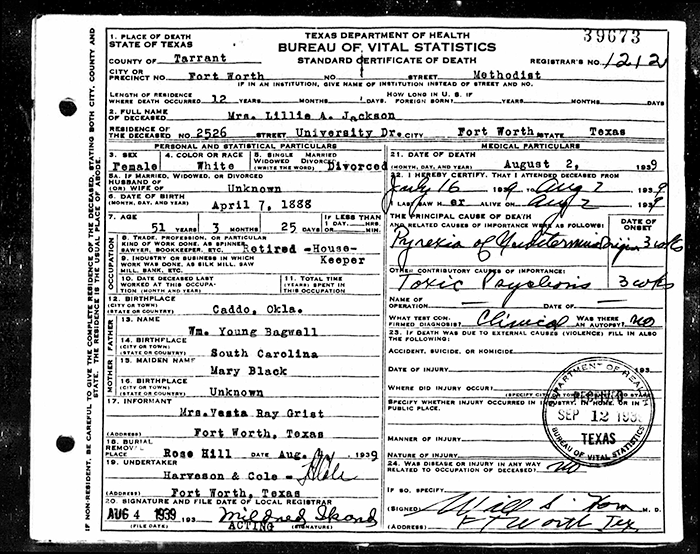 39673
TEXAS DEPARTMENT OF HEALTH
BUREAU OF VITAL STATISTICS
STANDARD CERTIFICATE OF DEATH
REGISTRAR'S NO. 1212
1. PLACE OF DEATH
STATE OF TEXAS
COUNTY OF Tarrant
CITY OR PRECINCT NO. Fort Worth NO. STREET Methodist
IF IN AN INSTITUTION, GIVE NAME OF INSTITUTION INSTEAD OF STREET AND NO.
LENGTH OF RESIDENCE WHERE DEATH OCCURRED 12 YEARS MONTHS DAYS HOW LONG IN U. S. IF FOREIGN BORN? YEARS MONTHS DAYS
2. FULL NAME OF DECEASED Mrs. Lillie A. Jackson
RESIDENCE OF THE DECEASED NO. 2526 STREET University Dr. CITY Fort Worth STATE Texas
PERSONAL AND STATISTICAL PARTICULARS
3. SEX Female
4. COLOR OR RACE White
5. SINGLE MARRIED WIDOWED DIVORCED (WRITE THE WORD) Divorced
5A. IF MARRIED, WIDOWED, OR DIVORCED
HUSBAND OF (OR) WIFE OF Unknown
6. DATE OF BIRTH (MONTH, DAY, AND YEAR) April 7, 1888
7. AGE 51 YEARS 3 MONTHS 25 DAYS IF LESS THAN 1 DAY HRS. MIN.
8. TRADE, PROFESSION, OR PARTICULAR KIND OF WORK DONE, AS SPINNER, SAWYER, BOOKKEEPER, ETC. Retired -House-
Keeper
9. INDUSTRY OR BUSINESS IN WHICH WORK WAS DONE, AS SILK MILL, SAW MILL, BANK, ETC.
10. DATE DECEASED LAST WORKED AT THIS OCCUPATION (MONTH AND YEAR)
11. TOTAL TIME (YEARS) SPENT IN THIS OCCUPATION
12. BIRTHPLACE (CITY OR TOWN) (STATE OR COUNTRY) Caddo, Okla.
FATHER
13. NAME Wm. Young Bagwell
14. BIRTHPLACE (CITY OR TOWN) (STATE OR COUNTRY) South Carolina
MOTHER
15. MAIDEN NAME Mary Black
16. BIRTHPLACE (CITY OR TOWN) (STATE OR COUNTRY) Unknown
17. INFORMANT Mrs. Vesta Ray Grist
(ADDRESS) Fort Worth, Texas
18. BURIAL REMOVAL PLACE Rose Hill DATE Aug. 1939
19. UNDERTAKER Harveson & Cole -
(ADDRESS) Fort Worth, Texas
20. SIGNATURE AND FILE DATE OF LOCAL REGISTRAR
AUG 4 1939 193 Mildred
(FILE DATE) ACTING (SIGNATURE)
MEDICAL PARTICULARS
21. DATE OF DEATH August 2, 1939
22. I HEREBY CERTIFY, THAT I ATTENDED DECEASED FROM
July 16 1939 TO Aug 2 1939
I LAST SAW h er ALIVE ON Aug 2 1939
THE PRINCIPAL CAUSE OF DEATH AND RELATED CAUSES OF IMPORTANCE WERE AS FOLLOWS: DATE OF ONSET
Pyrexia of Undermined 3 wks
OTHER CONTRIBUTORY CAUSES OF IMPORTANCE:
Toxic Psychosis 3 wks
NAME OF OPERATION — DATE OF —
WHAT TEST CONFIRMED DIAGNOSIS? Clinical WAS THERE AN AUTOPSY? no
23. IF DEATH WAS DUE TO EXTERNAL CAUSES (VIOLENCE) FILL IN ALSO THE FOLLOWING:
ACCIDENT, SUICIDE, OR HOMICIDE
DATE OF INJURY 193
WHERE DID INJURY OCCUR?
SPECIFY WHETHER INJURY OCCURRED IN INDUSTRY, IN HOME, OR IN PUBLIC PLACE.
MANNER OF INJURY
NATURE OF INJURY
24. WAS DISEASE OR INJURY IN ANY WAY RELATED TO OCCUPATION OF DECEASED? no
IF SO, SPECIFY
(SIGNED) Will S. Horn M. D.
(ADDRESS) Ft Worth Tex
DEPARTMENT OF HEALTH
RECEIVED
SEP 12 1939
TEXAS
BUREAU OF VITAL STATISTICS
IF NON-RESIDENT, BE CAREFUL TO GIVE THE COMPLETE RESIDENCE OF THE DECEASED, STATING BOTH CITY, COUNTY AND STATE. THE RESIDENCE IS THE USUAL PLACE OF ABODE.